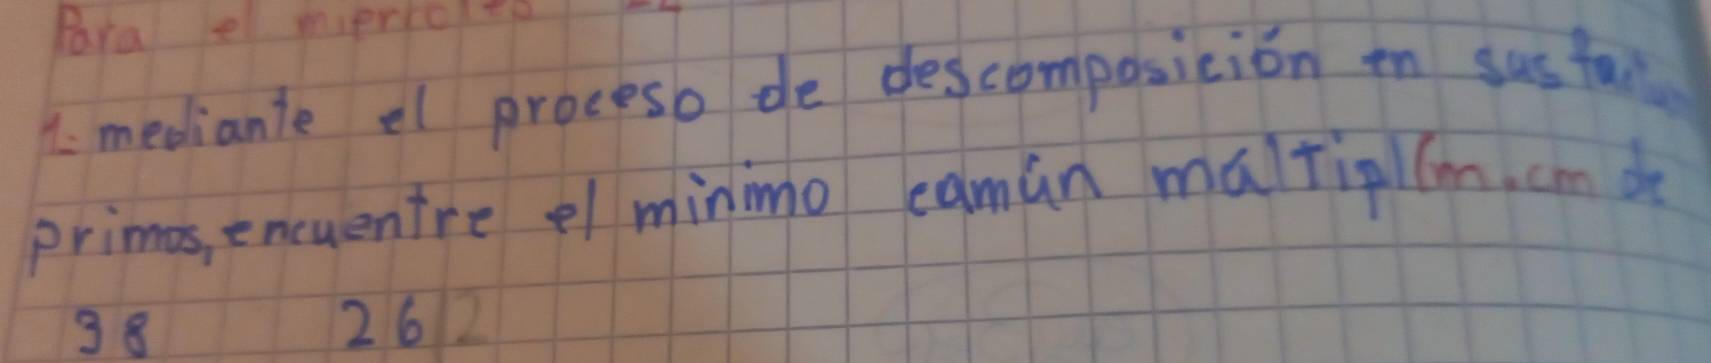 Para el miercoles
1. mediante el proceso de descomposición en sus
primos, encuentre el minimo camún maltipl(m.cm de
38 26 2